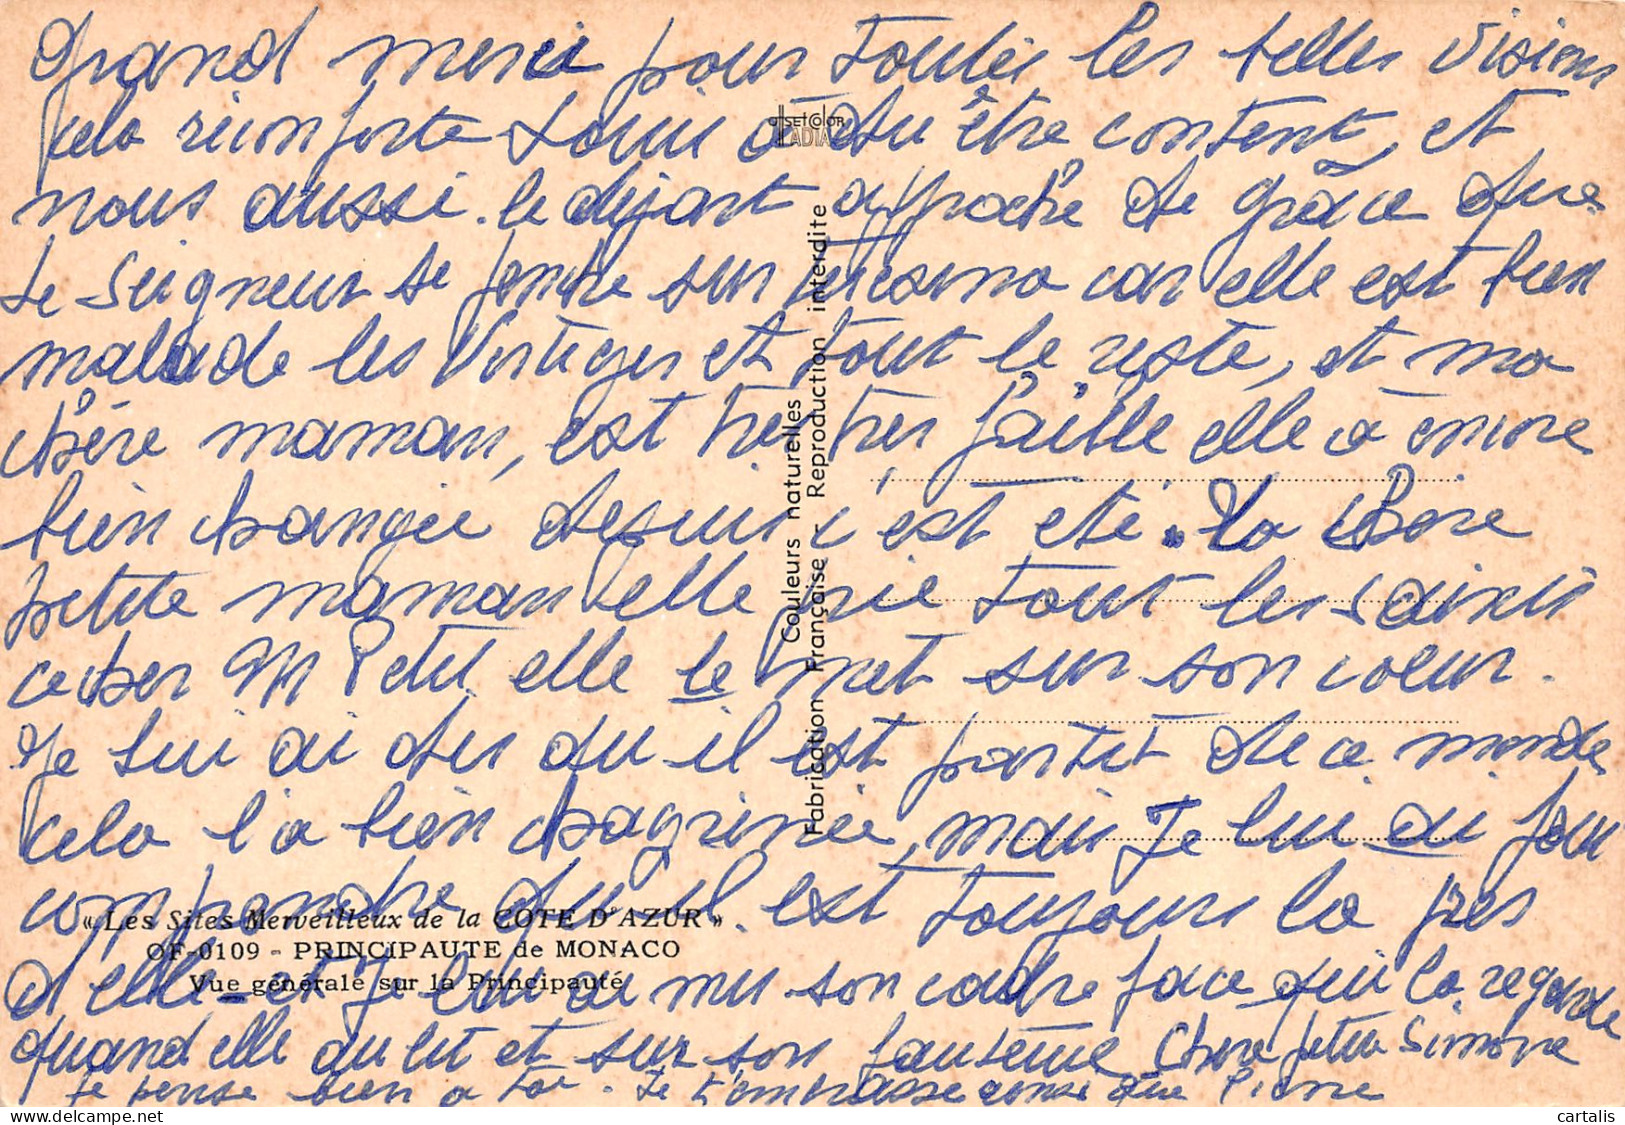 Grand merci pour Toutes les belles visions
cela réconforte Louis a du être content, et
nous aussi. le départ approche de grâce que
le Seigneur se penche sur car elle est bien
malade les Vertiges et tout le reste, et ma
chère maman, est très très faible elle a encore
bien changée depuis c'est été. La chère
petite maman elle prie Tout les saints
cather M Petit elle le met sur son coeur.
Je lui ai dis qu il est partit de ce monde
cela l'a bien chagrinée, mais Je lui ai fau
comprendre qu'il est toujours la près
d'elle - et Je lui ai mis son cadre face qui la regarde
quand elle au lit et sur son fauteuil Chère petite Simone
Je pense bien a toi. Je t'embrasse ainsi que Pierre
OFFSET COLOR
RADIA
Couleurs naturelles
Fabrication Française - Reproduction interdite
« Les Sites Merveilleux de la COTE D'AZUR »
OF-0109 - PRINCIPAUTE de MONACO
Vue générale sur la Principauté
cartalis